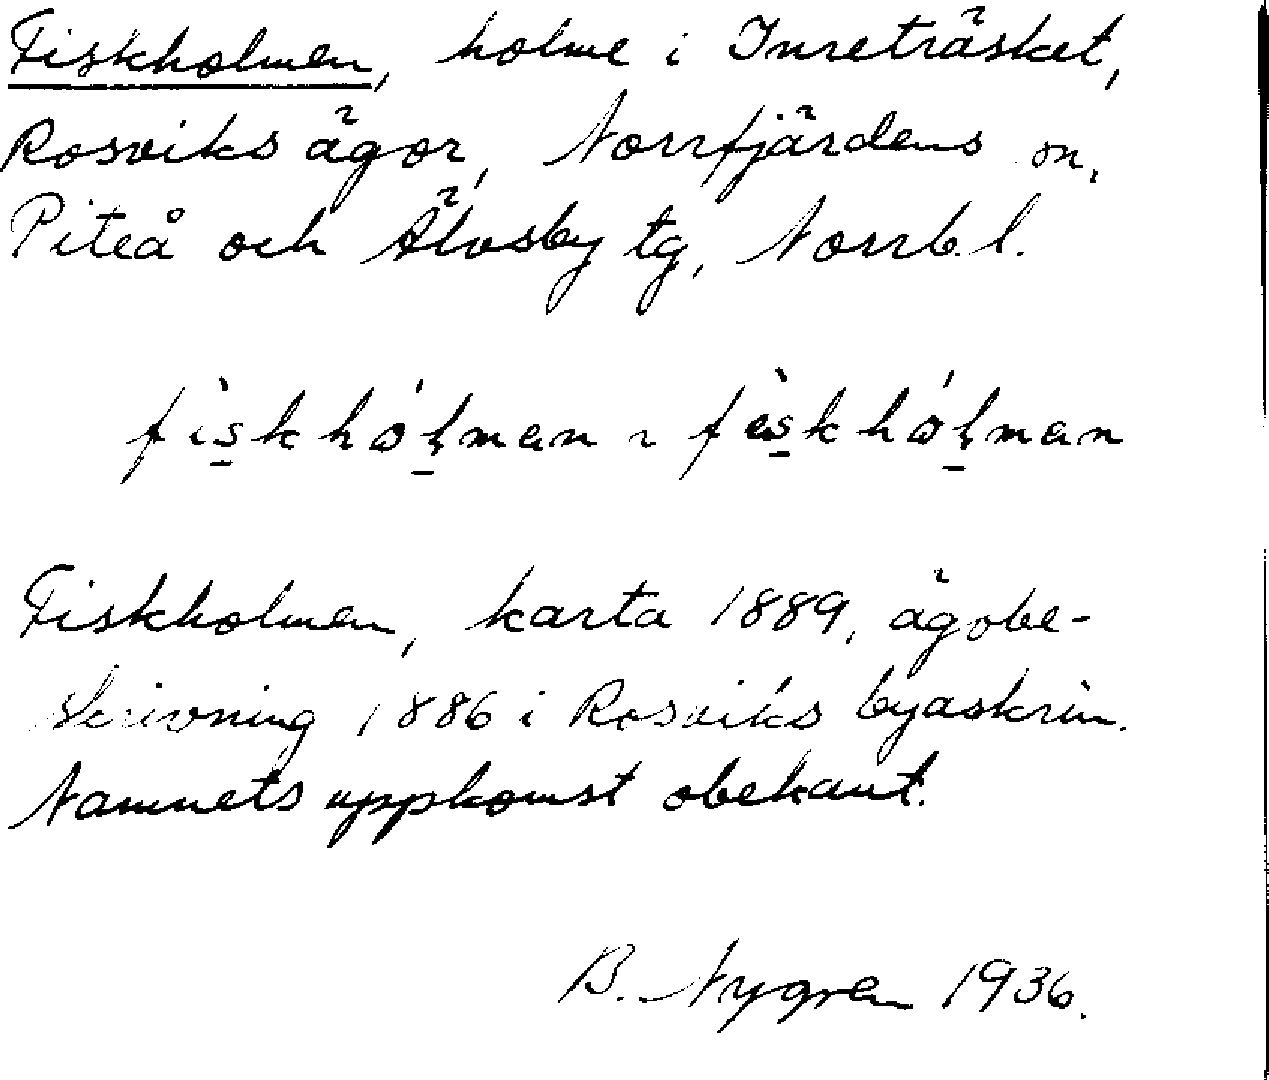 Fiskholmen, holme i Inreträsket,
Rosviks ägor, Norrfjärdens sn,
Piteå och Älvsby tg, Norrb. l.
fìskhólman ~ fèskhólman
Fiskholmen, karta 1889, ägobe-
skrivning 1886 i Rosviks byaskrin.
Namnets uppkomst obekant.
B. Nygren 1936.